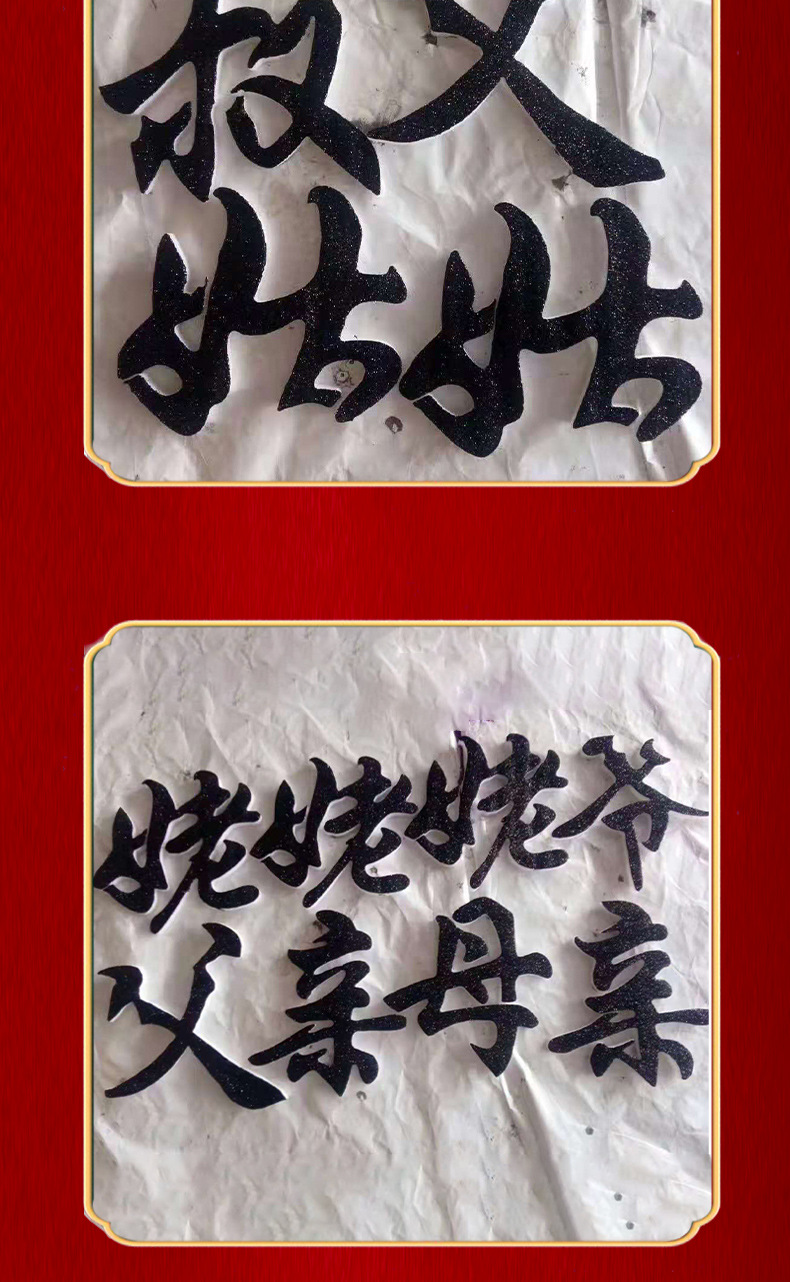 叔父
姑姑
姥姥姥爷
父亲母亲